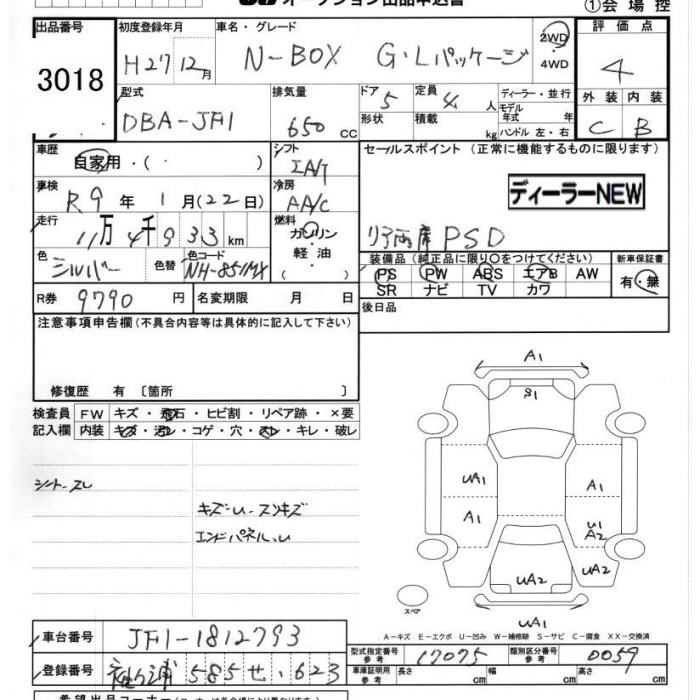 オークション出品申込書
①会場控
出品番号
3018
初度登録年月
H27 12月
車名・グレード
N-BOX G・Lパッケージ
2WD
・
4WD
評価点
4
外装 内装
C B
型式
DBA-JF1
排気量
650 CC
ドア 5
形状
定員 4 人
積載 kg
ディーラー・並行
モデル年式 年
ハンドル 左・右
車歴
自家用・( )
シフト
IAT
車検
R9年 1月(22日)
冷房
AA/C
走行
11万4千933km
燃料
ガソリン
軽油
・
色
シルバー
色替
色コード
NH-851MX
R券 9790 円
名変期限 月 日
セールスポイント (正常に機能するものに限ります)
ディーラーNEW
リア両席PSD
装備品 (純正品に限り○をつけてください)
PS PW ABS エアB AW
SR ナビ TV カワ
新車保証書
有・無
後日品
注意事項申告欄(不具合内容等は具体的に記入して下さい)
修復歴 有 〔箇所 〕
検査員
記入欄
FW キズ・飛石・ヒビ割・リペア跡・×要
内装 キズ・汚レ・コゲ・穴・スレ・キレ・破レ
シートスレ
キズ・U・スリキズ
エンドパネル、U
A1
S1
UA1
A1
A1
A1
U1
A2
UA2
UA2
UA1
スペア
A-キズ E-エクボ U-凹み W-補修跡 S-サビ C-腐食 XX-交換済
車台番号 JF1-1812793
登録番号 585せ 623
型式指定番号
参考
17075
類別区分番号
参考
0059
車庫証明用
参考
長さ cm 幅 cm 高さ cm
希望出品コーナー